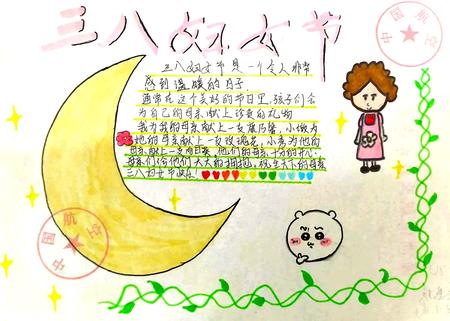 三八妇女节
中国航空
三八妇女节是一个令人非常
感到温暖的日子
通常在这个美好的节日里,孩子们会
为自己的母亲献上珍贵的礼物
我为我的母亲献上一支康乃馨,小妹为
她的母亲献上一支玫瑰花,小亮为他的
母亲献上一支百合,他们的母亲十分的开心,
母亲们给他们大大的拥抱,祝全天下的母亲
三八妇女节快乐!
中国航空